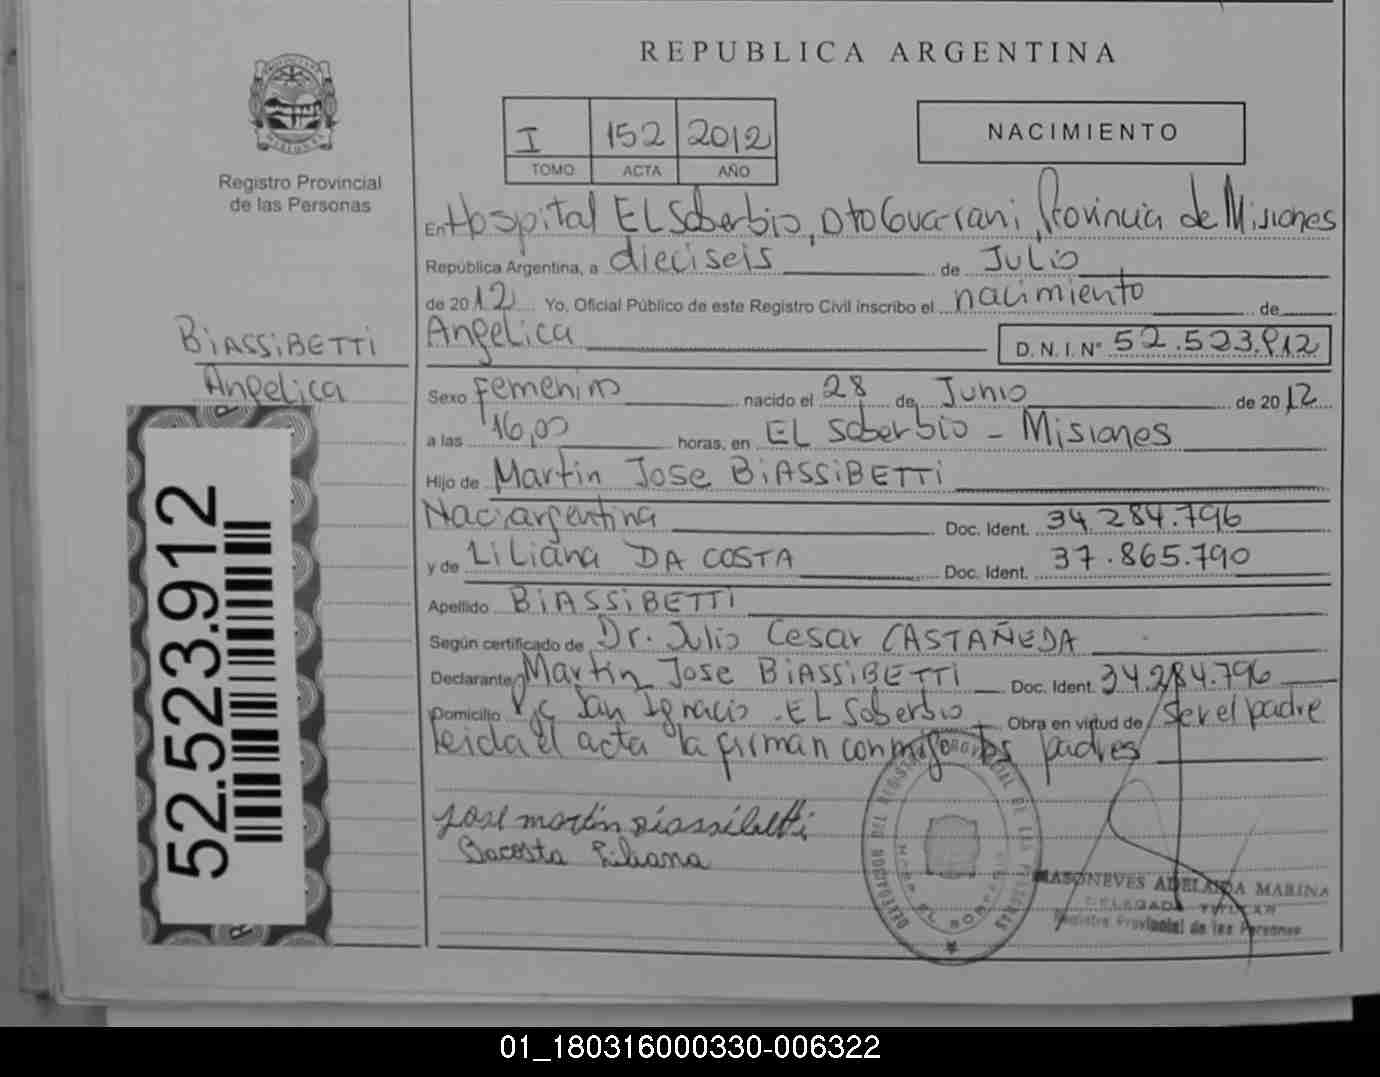 REPUBLICA ARGENTINA
Registro Provincial
de las Personas
I 152 2012
TOMO ACTA AÑO
NACIMIENTO
En Hospital EL Soberbio, Dto Guarani, Provincia de Misiones
República Argentina, a dieciseis de JULIO
de 2012 Yo, Oficial Público de este Registro Civil inscribo el nacimiento de
Angelica D.N.I. N° 52.523.912
BIASSIBETTI
Angelica
Sexo Femenino nacido el 28 de Junio de 2012
a las 16,00 horas, en EL Soberbio - Misiones
Hijo de Martin Jose BIASSIBETTI
Nac. argentina Doc. Ident. 34.284.796
y de LiLiana DA COSTA Doc. Ident. 37.865.790
Apellido BIASSIBETTI
Según certificado de Dr. Julio Cesar CASTAÑEDA
Declarante Martin Jose BIASSIBETTI Doc. Ident. 34.284.796
Domicilio San Ignacio - EL Soberbio Obra en virtud de ser el padre
leida el acta la firman conmigo los padres
Jose martin Biassibetti
Dacosta Liliana
52.523.912
MASONEVES ADELAIDA MARINA
DELEGADA TITULAR
Registro Provincial de las Personas
01_180316000330-006322